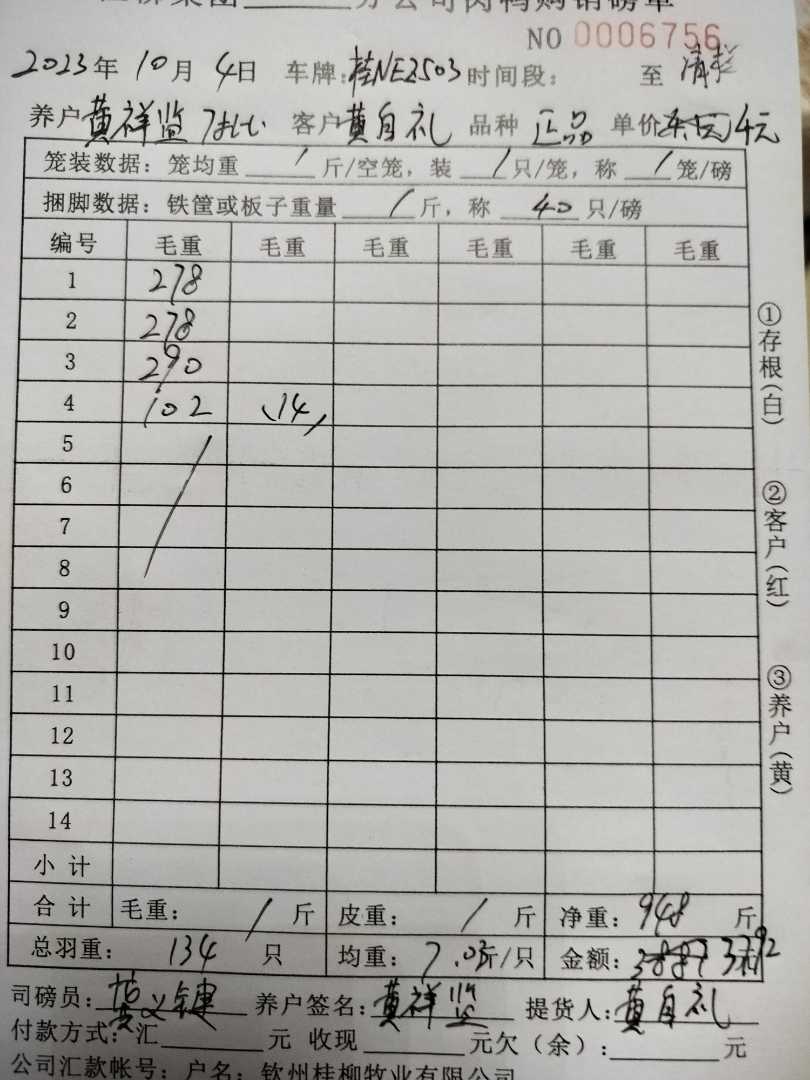 分公司肉鸭购销磅单
NO 0006756
2023年 10月 4日 车牌:桂NE2503 时间段: 至 清栏
养户 黄祥监 客户 黄自礼 品种 正品 单价 4元
笼装数据：笼均重 / 斤/空笼，装 / 只/笼，称 / 笼/磅
捆脚数据：铁筐或板子重量 / 斤，称 40 只/磅
编号 毛重 毛重 毛重 毛重 毛重 毛重
1 278
2 278
3 290
4 102 14
5
6
7
8
9
10
11
12
13
14
小计
合计 毛重： / 斤 皮重： / 斤 净重：948 斤
总羽重： 134 只 均重：7.03斤/只 金额：3792
司磅员： 黄义健 养户签名：黄祥监 提货人：黄自礼
付款方式：汇 元 收现 元欠（余）： 元
公司汇款帐号：户名：钦州桂柳牧业有限公司
①存根（白）
②客户（红）
③养户（黄）